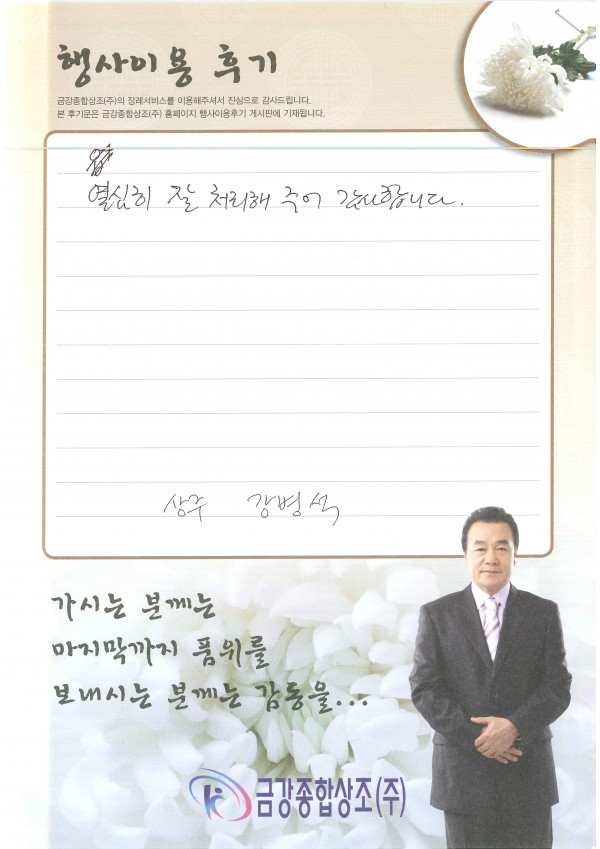 행사이용 후기
금강종합상조(주)의 장례서비스를 이용해주셔서 진심으로 감사드립니다.
본 후기문은 금강종합상조(주) 홈페이지 행사이용후기 게시판에 기재됩니다.
열심히 잘 처리해 주어 감사합니다.
상주 강병석
가시는 분께는
마지막까지 품위를
보내시는 분께는 감동을...
금강종합상조(주)